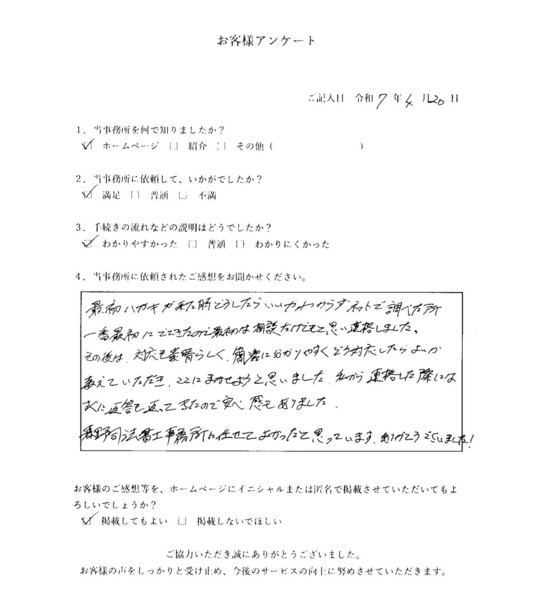 お客様アンケート
ご記入日 令和 7 年 4 月 20 日
1．当事務所を何で知りましたか？
☑ ホームページ □ 紹介 □ その他（ ）
2．当事務所に依頼して、いかがでしたか？
☑ 満足 □ 普通 □ 不満
3．手続きの流れなどの説明はどうでしたか？
☑ わかりやすかった □ 普通 □ わかりにくかった
4．当事務所に依頼されたご感想をお聞かせください。
最初ハガキが来た時どうしたらいいかわからずネットで調べた所
一番最初にでてきたので最初は相談だけでもと思い連絡しました。
その後は、対応も素晴らしく、簡潔に分かりやすくどう対応したらよいか
教えていただき、ここにまかせようと思いました。私から連絡した際には
すぐに返答も返ってきたので安心感もありました。
司法書士事務所に任せてよかったと思っています。ありがとうございました！
お客様のご感想等を、ホームページにイニシャルまたは匿名で掲載させていただいてもよ
ろしいでしょうか？
☑ 掲載してもよい □ 掲載しないでほしい
ご協力いただき誠にありがとうございました。
お客様の声をしっかりと受け止め、今後のサービスの向上に努めさせていただきます。